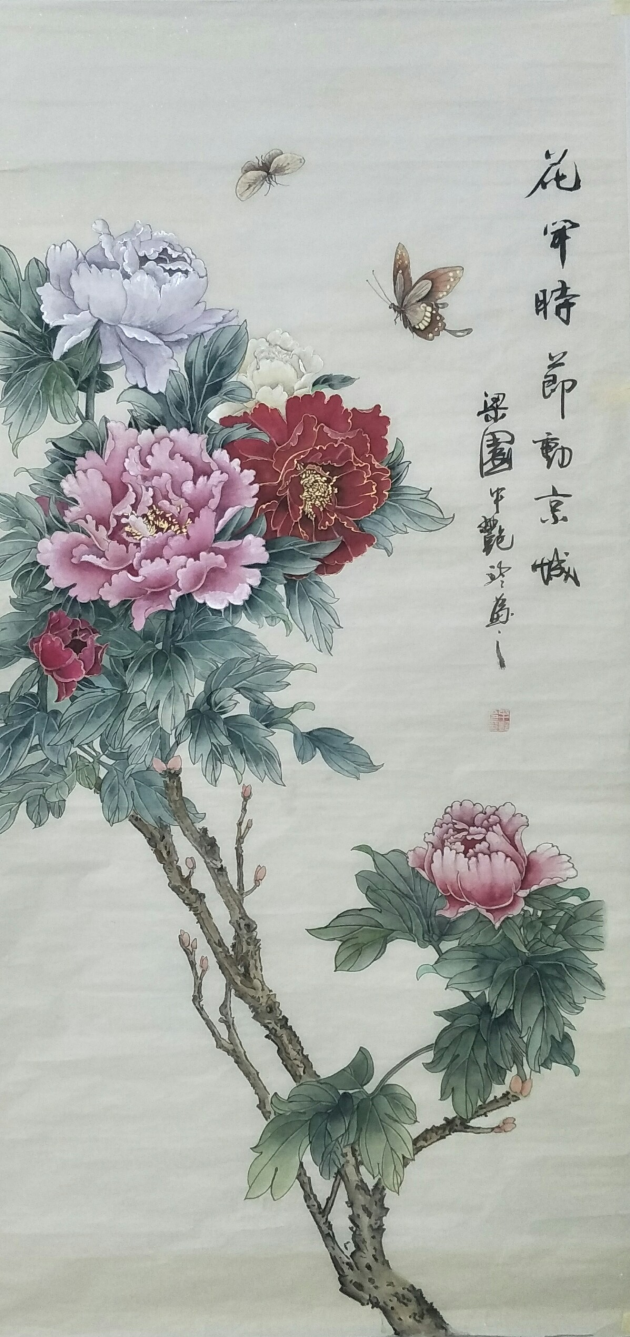 花開時節動京城
梁園